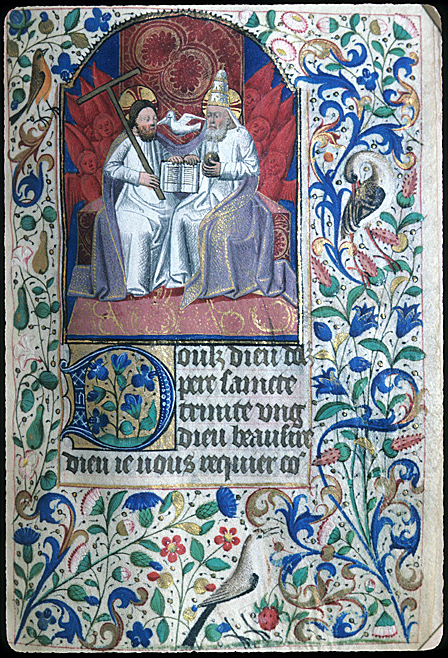 Doulz dieu
pere saincte
trinite vng
dieu beausire
dieu ie vous requier cõ